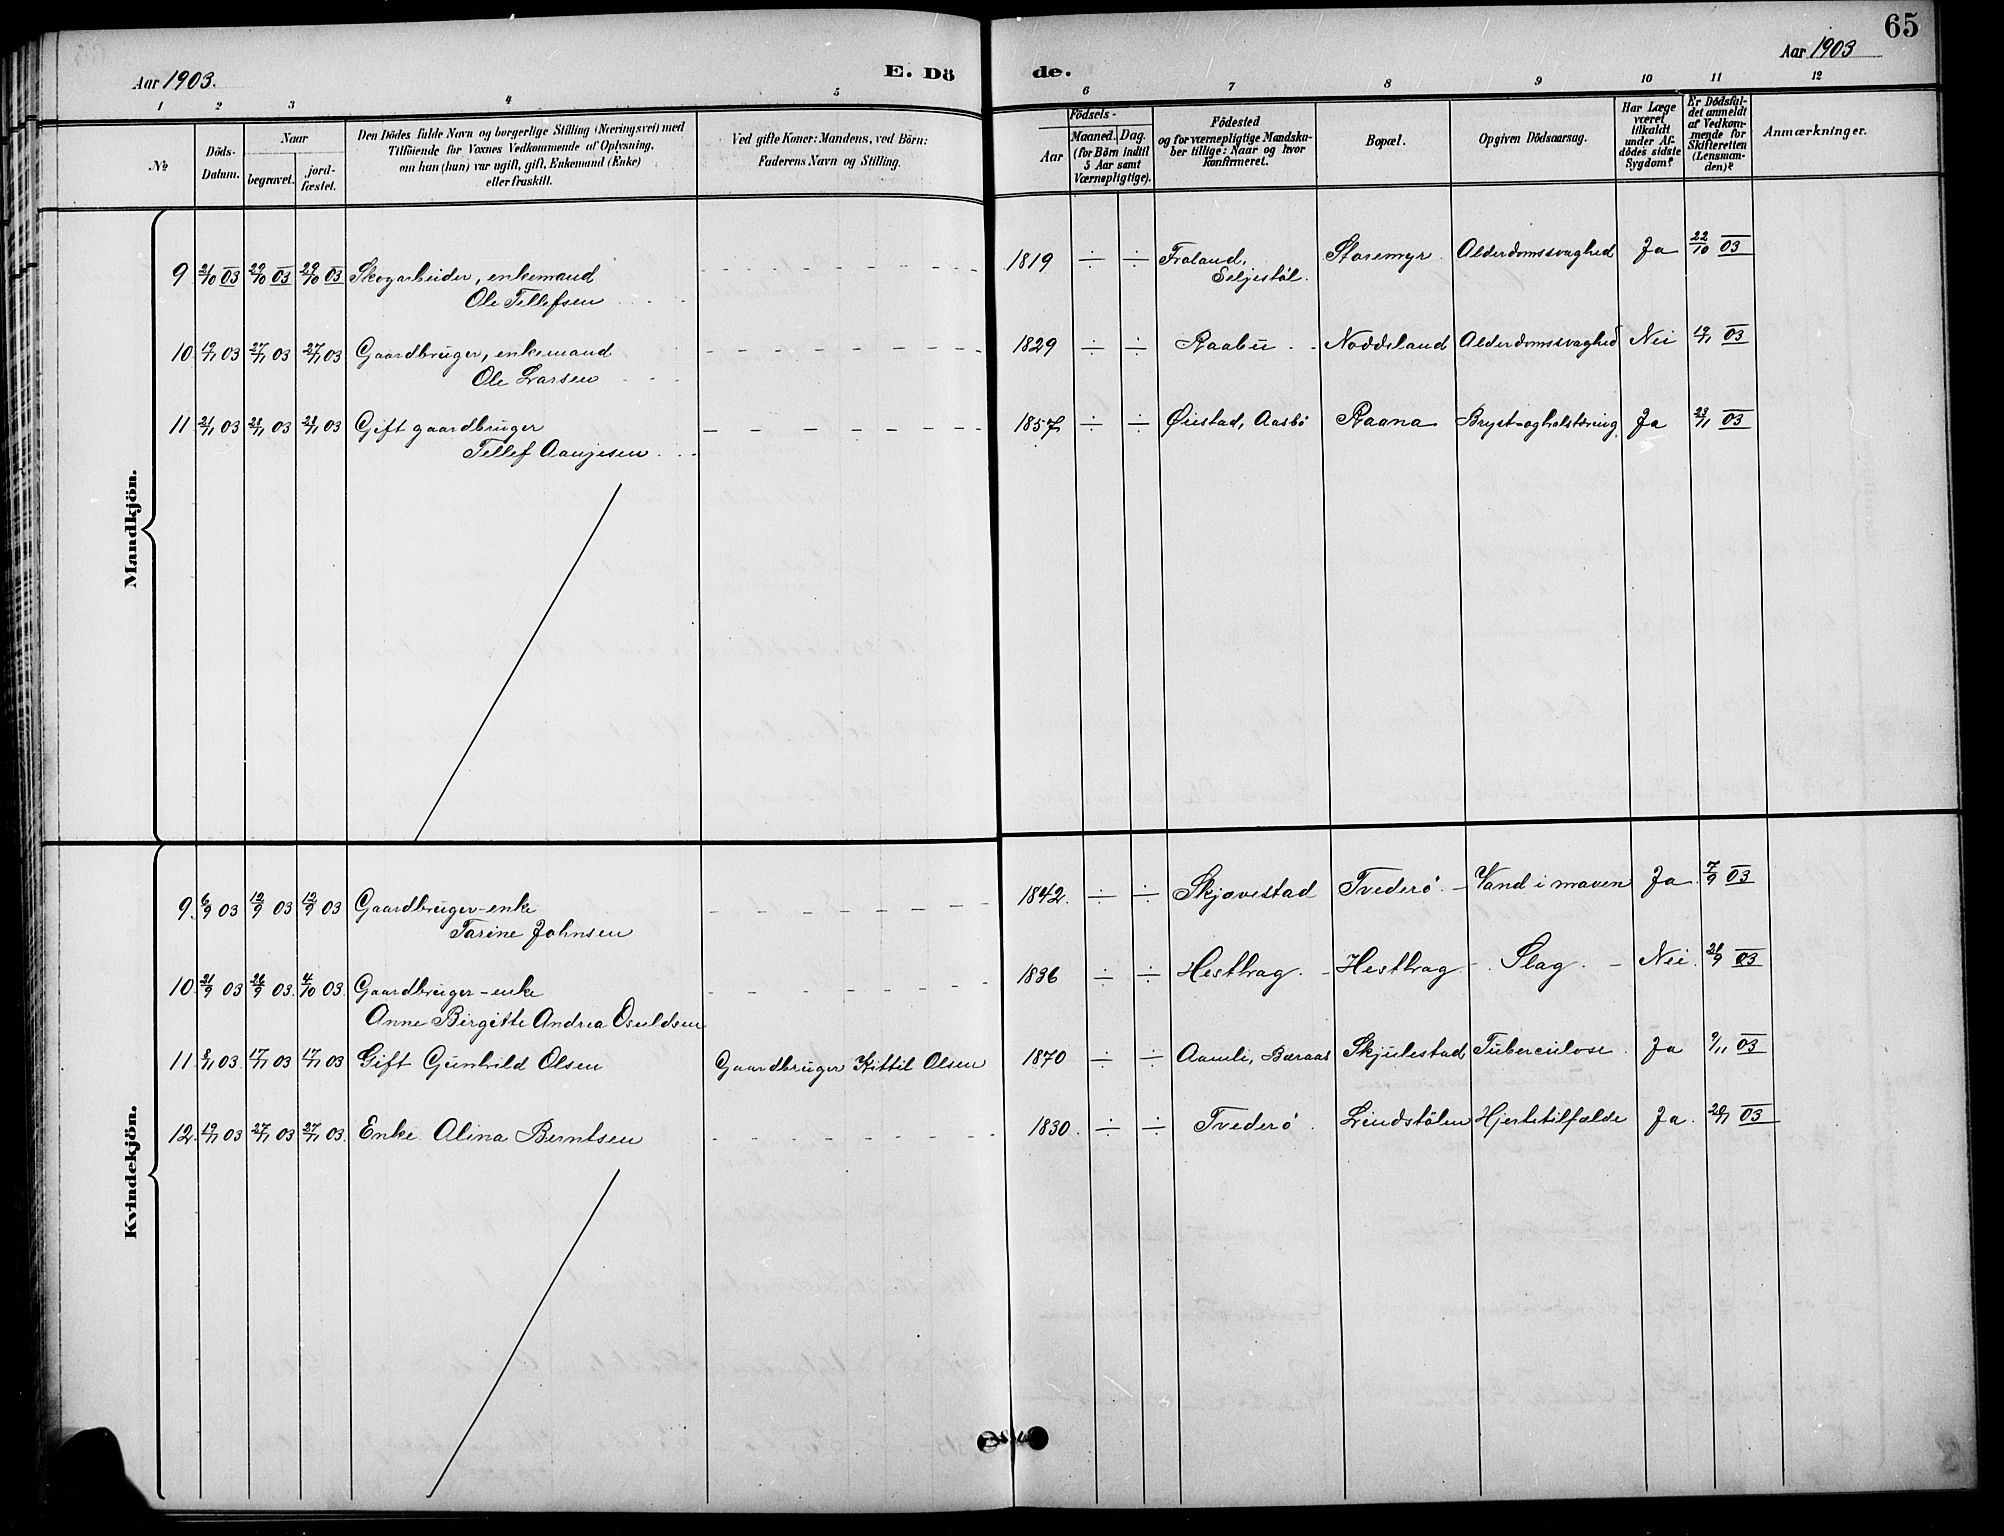 65
Aar 1903.
E. Dö
de.
Aar 1903
1 2 3 4 5 6 7 8 9 10 11 12
№
Döds-
Datum.
Naar
begravet.
jord-
fæstet.
Den Dödes fulde Navn og borgerlige Stilling (Næringsvei) med
Tilföiende for Voxnes Vedkommende af Oplysning,
om han (hun) var ugift, gift, Enkemand (Enke)
eller fraskilt.
Ved gifte Koner: Mandens, ved Börn:
Faderens Navn og Stilling.
Födsels-
Aar
Maaned. Dag.
(for Börn indtil
5 Aar samt
Værnepligtige).
Födested
og for værnepligtige Mandska-
ber tillige: Naar og hvor
Konfirmeret.
Bopæl.
Opgiven Dödsaarsag.
Har Læge
været
tilkaldt
under Af-
dödes sidste
Sygdom?
Er Dödsfal-
det anmeldt
af Vedkom-
mende for
Skifteretten
(Lensman-
den)?
Anmærkninger.
Mandkjön.
9 21/10 03 29/10 03 29/10 03 Skogarbeider, enkemand 1819 ÷ ÷ Froland, Staremyr. Alderdomssvaghed Ja 22/10 03
Ole Tellefsen Seljestøl.
10 19/11 03 27/11 03 27/11 03 Gaardbruger, enkemand 1829 ÷ ÷ Raabu Noddeland Alderdomssvaghed Nei 19/11 03
Ole Larsen
11 21/11 03 28/11 03 28/11 03 Gift gaardbruger 1857 ÷ ÷ Øiestad, Aasbø Raana Bryst- og halstæring Ja 23/11 03
Tellef Aanjesen
Kvindekjön.
9. 6/9 03 12/9 03 12/9 03 Gaardbruger-enke 1842. ÷ ÷ Skjævestad Tvederö. Vand i maven Ja 7/9 03
Tarine Johnsen
10 21/9 03 26/9 03. 4/10 03. Gaardbruger-enke 1836 ÷ ÷ Hesthag. Hesthag Slag. Nei. 26/9 03
Anne Birgitte Andrea Osuldsen
11 8/11 03 17/11 03 17/11 03 Gift Gunhild Olsen Gaardbruger Kittil Olsen 1870 ÷ ÷ Aamli, Baraas Skjulestad Tuberculose. Ja 9/11 03
12. 19/11 03 27/11 03 27/11 03. Enke Alina Berntsen 1830. ÷ ÷ Tvederö. Lindstölen Hjertetilfælde Ja. 20/11 03